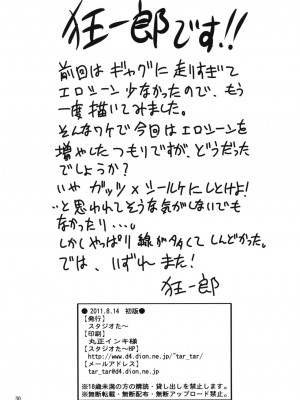 狂一郎です!!
前回は ギャグに 走りすぎて
エロシーン 少なかったので、もう
一度 描いてみました。
そんなワケで 今回は エロシーンを
増やした つもりですが、どうだった
でしょうか?
いや ガッツ×シールケにしとけよ!
…と 思われてそうな 気がしないでも
なかったり…。
しかし やっぱり 線が多くて しんどかった。
では、いずれ また!
狂一郎
● 2011.8.14 初版●
【発行】
スタジオた〜
【印刷】
丸正インキ様
【スタジオた〜HP】
http://www.d4.dion.ne.jp/~tar_tar/
【メールアドレス】
tar_tar@d4.dion.ne.jp
※18歳未満の方の購読・貸し出しを禁止します。
※無断転載・無断配布・無断アップロード禁止。
30